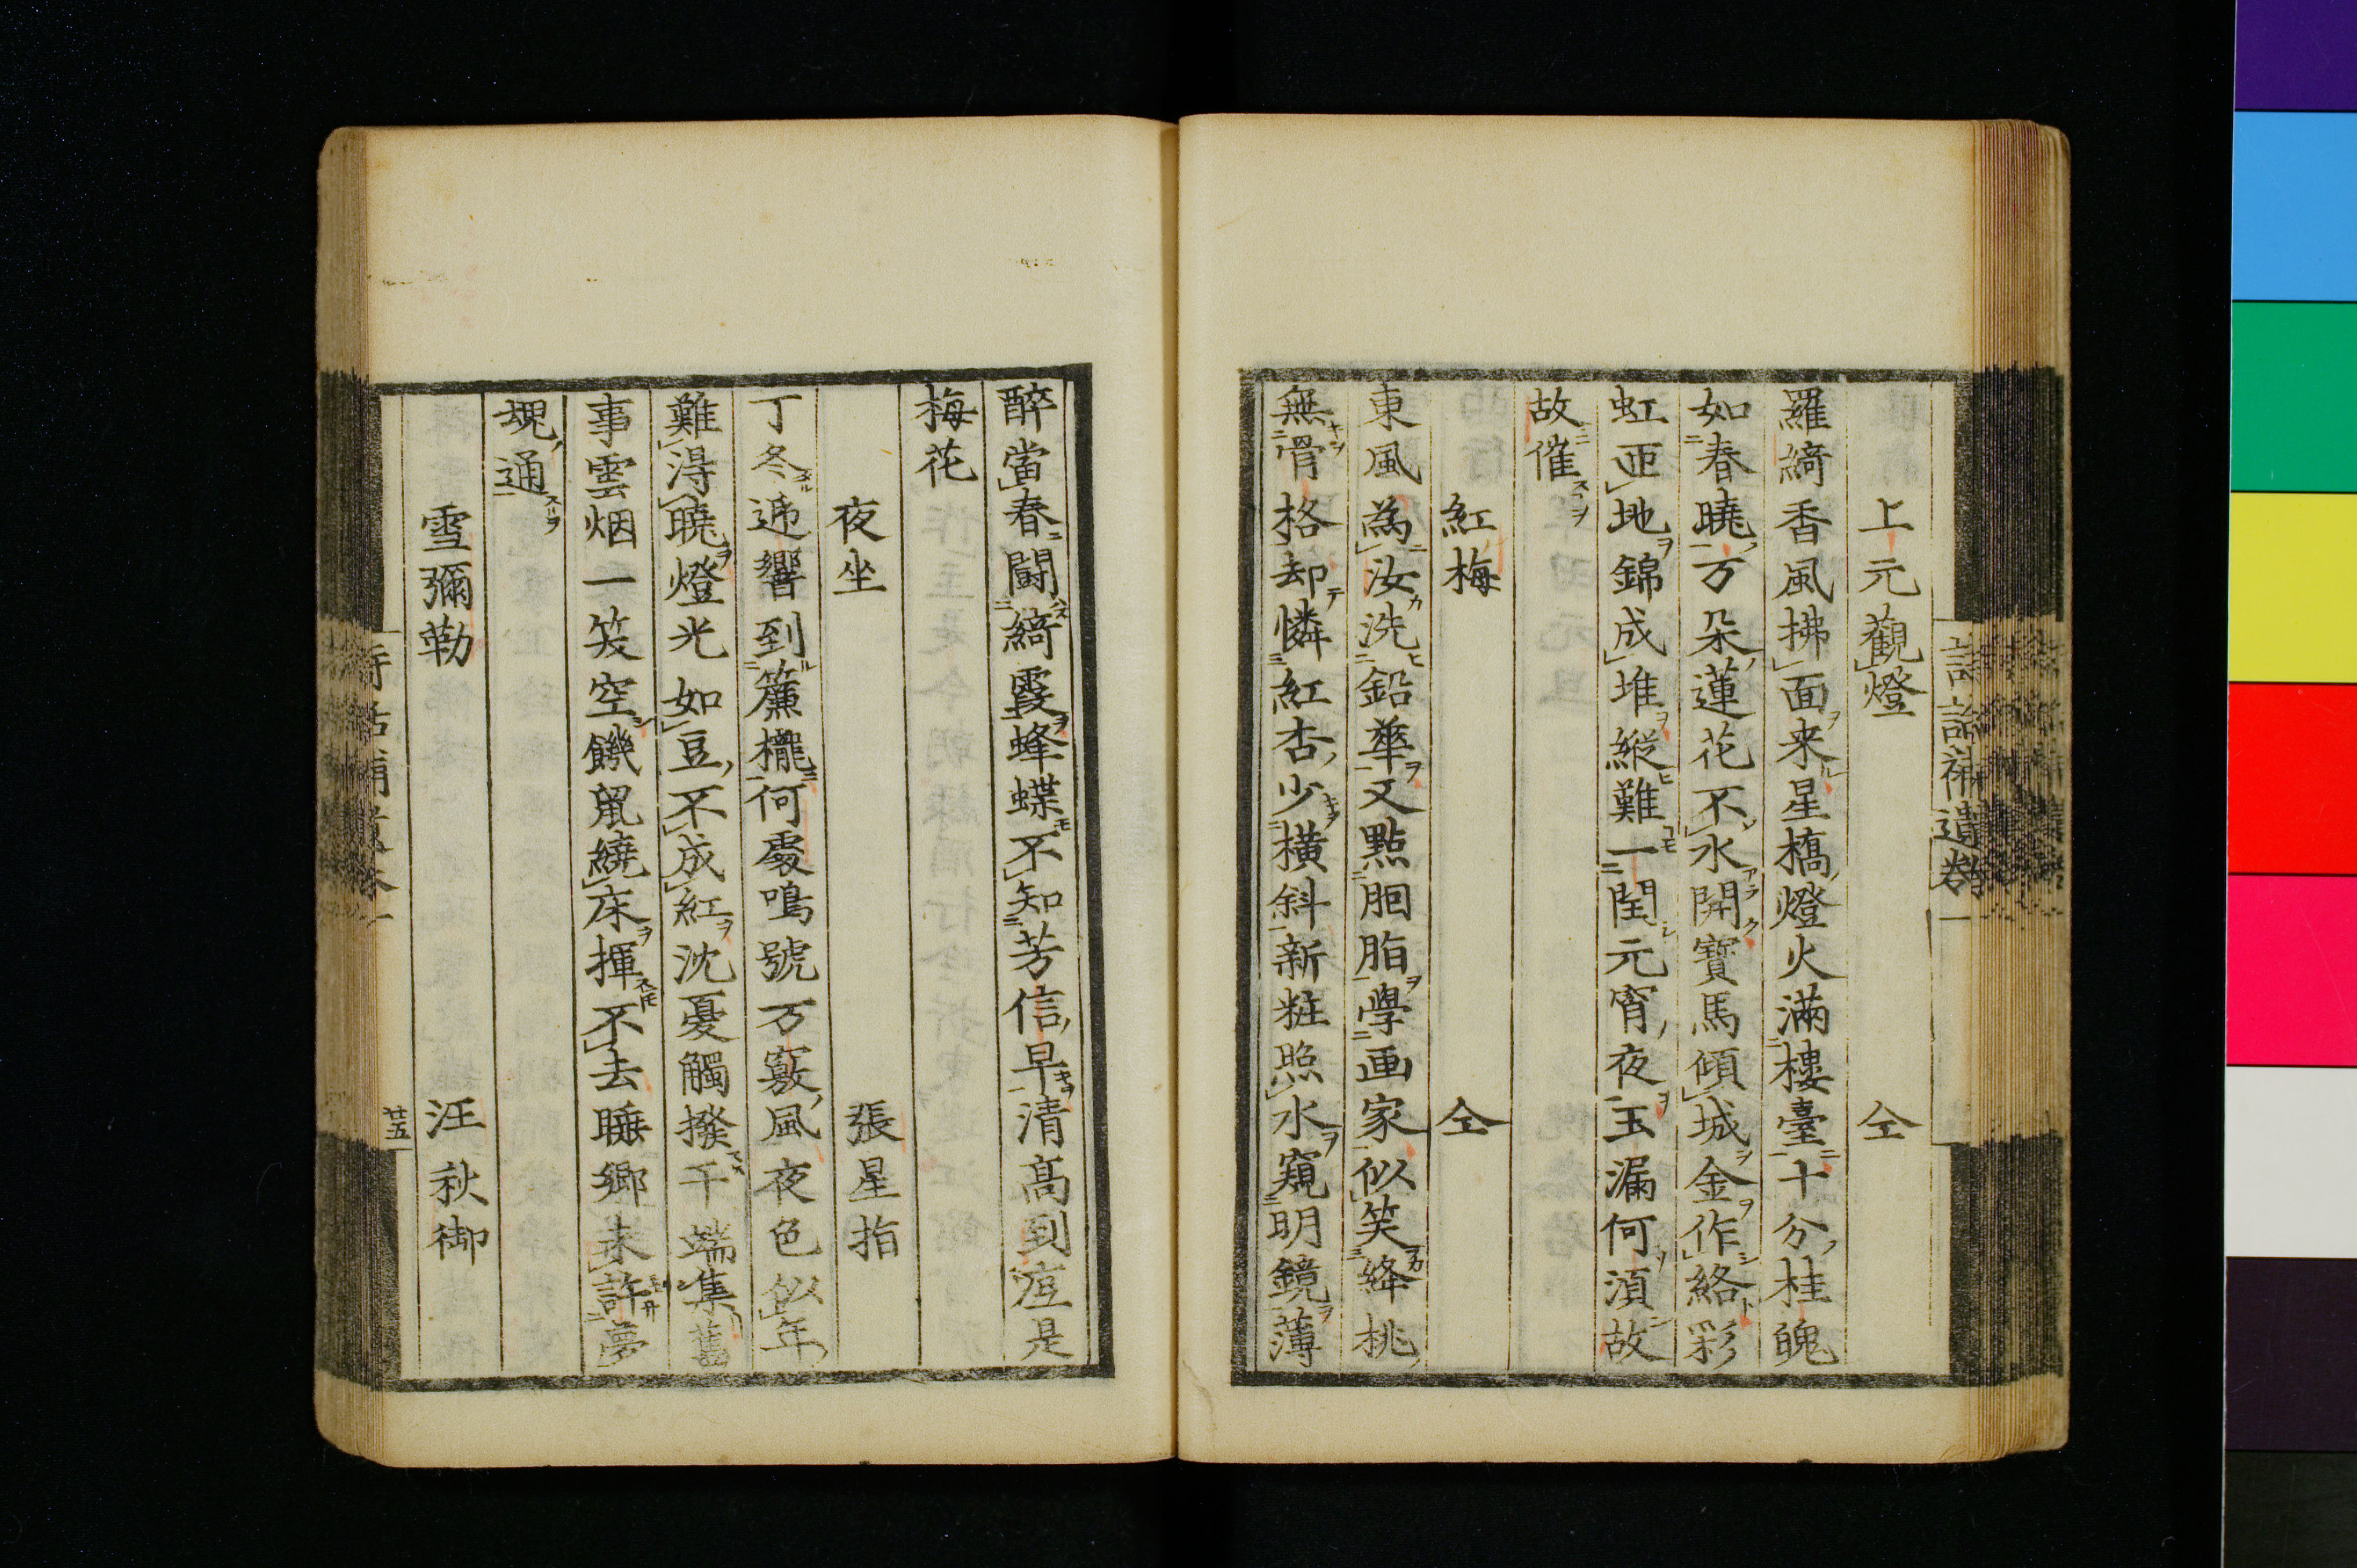 上元觀燈　仝
羅綺香風拂面来星橋燈火滿樓臺十分桂魄
如春曉万朵蓮花不水開寳馬傾城金作絡彩
虹迊地錦成堆縦難一閏元宵夜玉漏何湏故
故催
紅梅　仝
東風為汝洗鉛華又點胭脂學画家似笑絳桃
無骨格却憐紅杏少橫斜新粧照水窺明鏡薄
醉當春闘綺霞蜂蝶不知芳信早清高到底是
梅花
夜坐　張星指
丁冬逓響到簾櫳何處鳴號万竅風夜色似年
難淂曉燈光如豆不成紅沈憂觸撥千端集舊
事雲烟一笑空饑鼠繞床揮不去睡鄉未許夢
魂通
雪彌勒　汪秋御
廿五